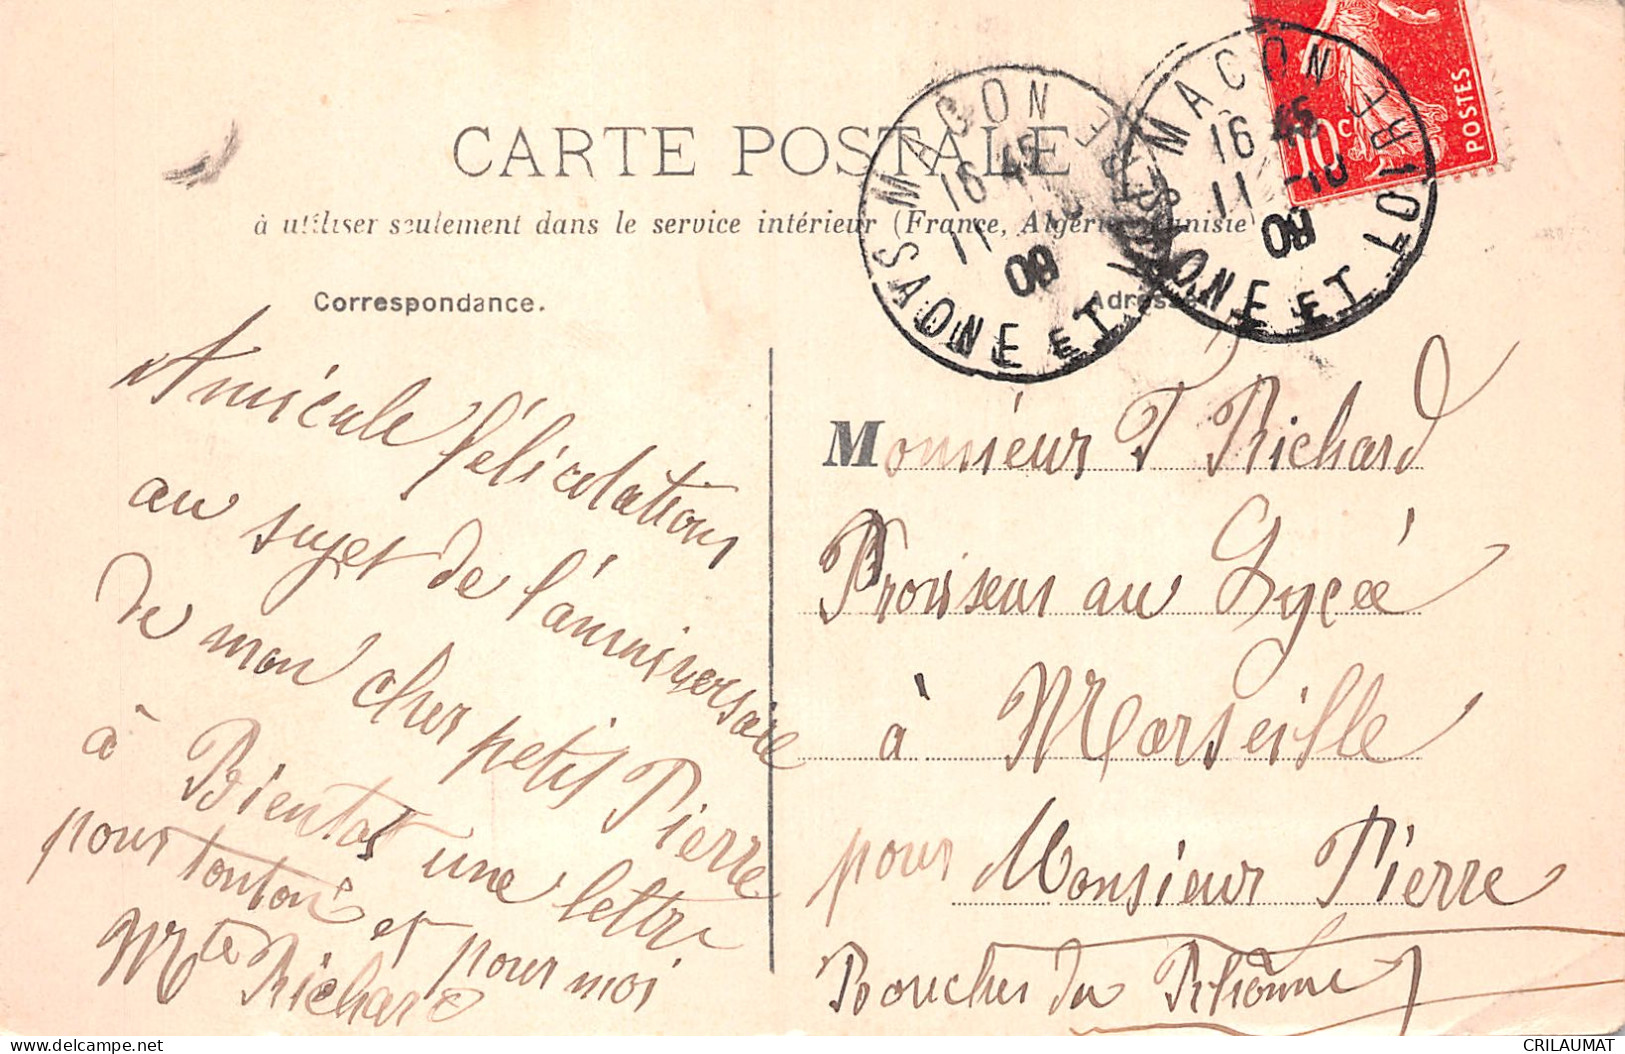 CARTE POSTALE
à utiliser seulement dans le service intérieur (France, Algérie, Tunisie
Correspondance.
Adresse
MACON
16 45
11 -10
09
SAONE ET LOIRE
MACON
16 45
11
09
SAONE ET LOIRE
10c
POSTES
Amicale félicitations
au sujet de l'anniversaire
de mon cher petit Pierre
à Bientot une lettre
pour tonton et pour moi
Mte Richard
Monsieur T Richard
Proviseur au Lycée
à Marseille
pour Monsieur Pierre
Bouches du Rhône
CRILAUMAT